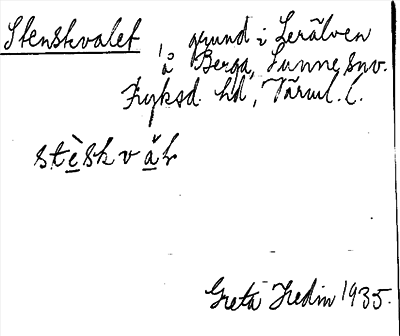 Stenskvalet, grund i Lerälven
å Berga, Sunne snv.
Fryksd. hd, Värml. l.
stèskvål
Greta Hedin 1935.